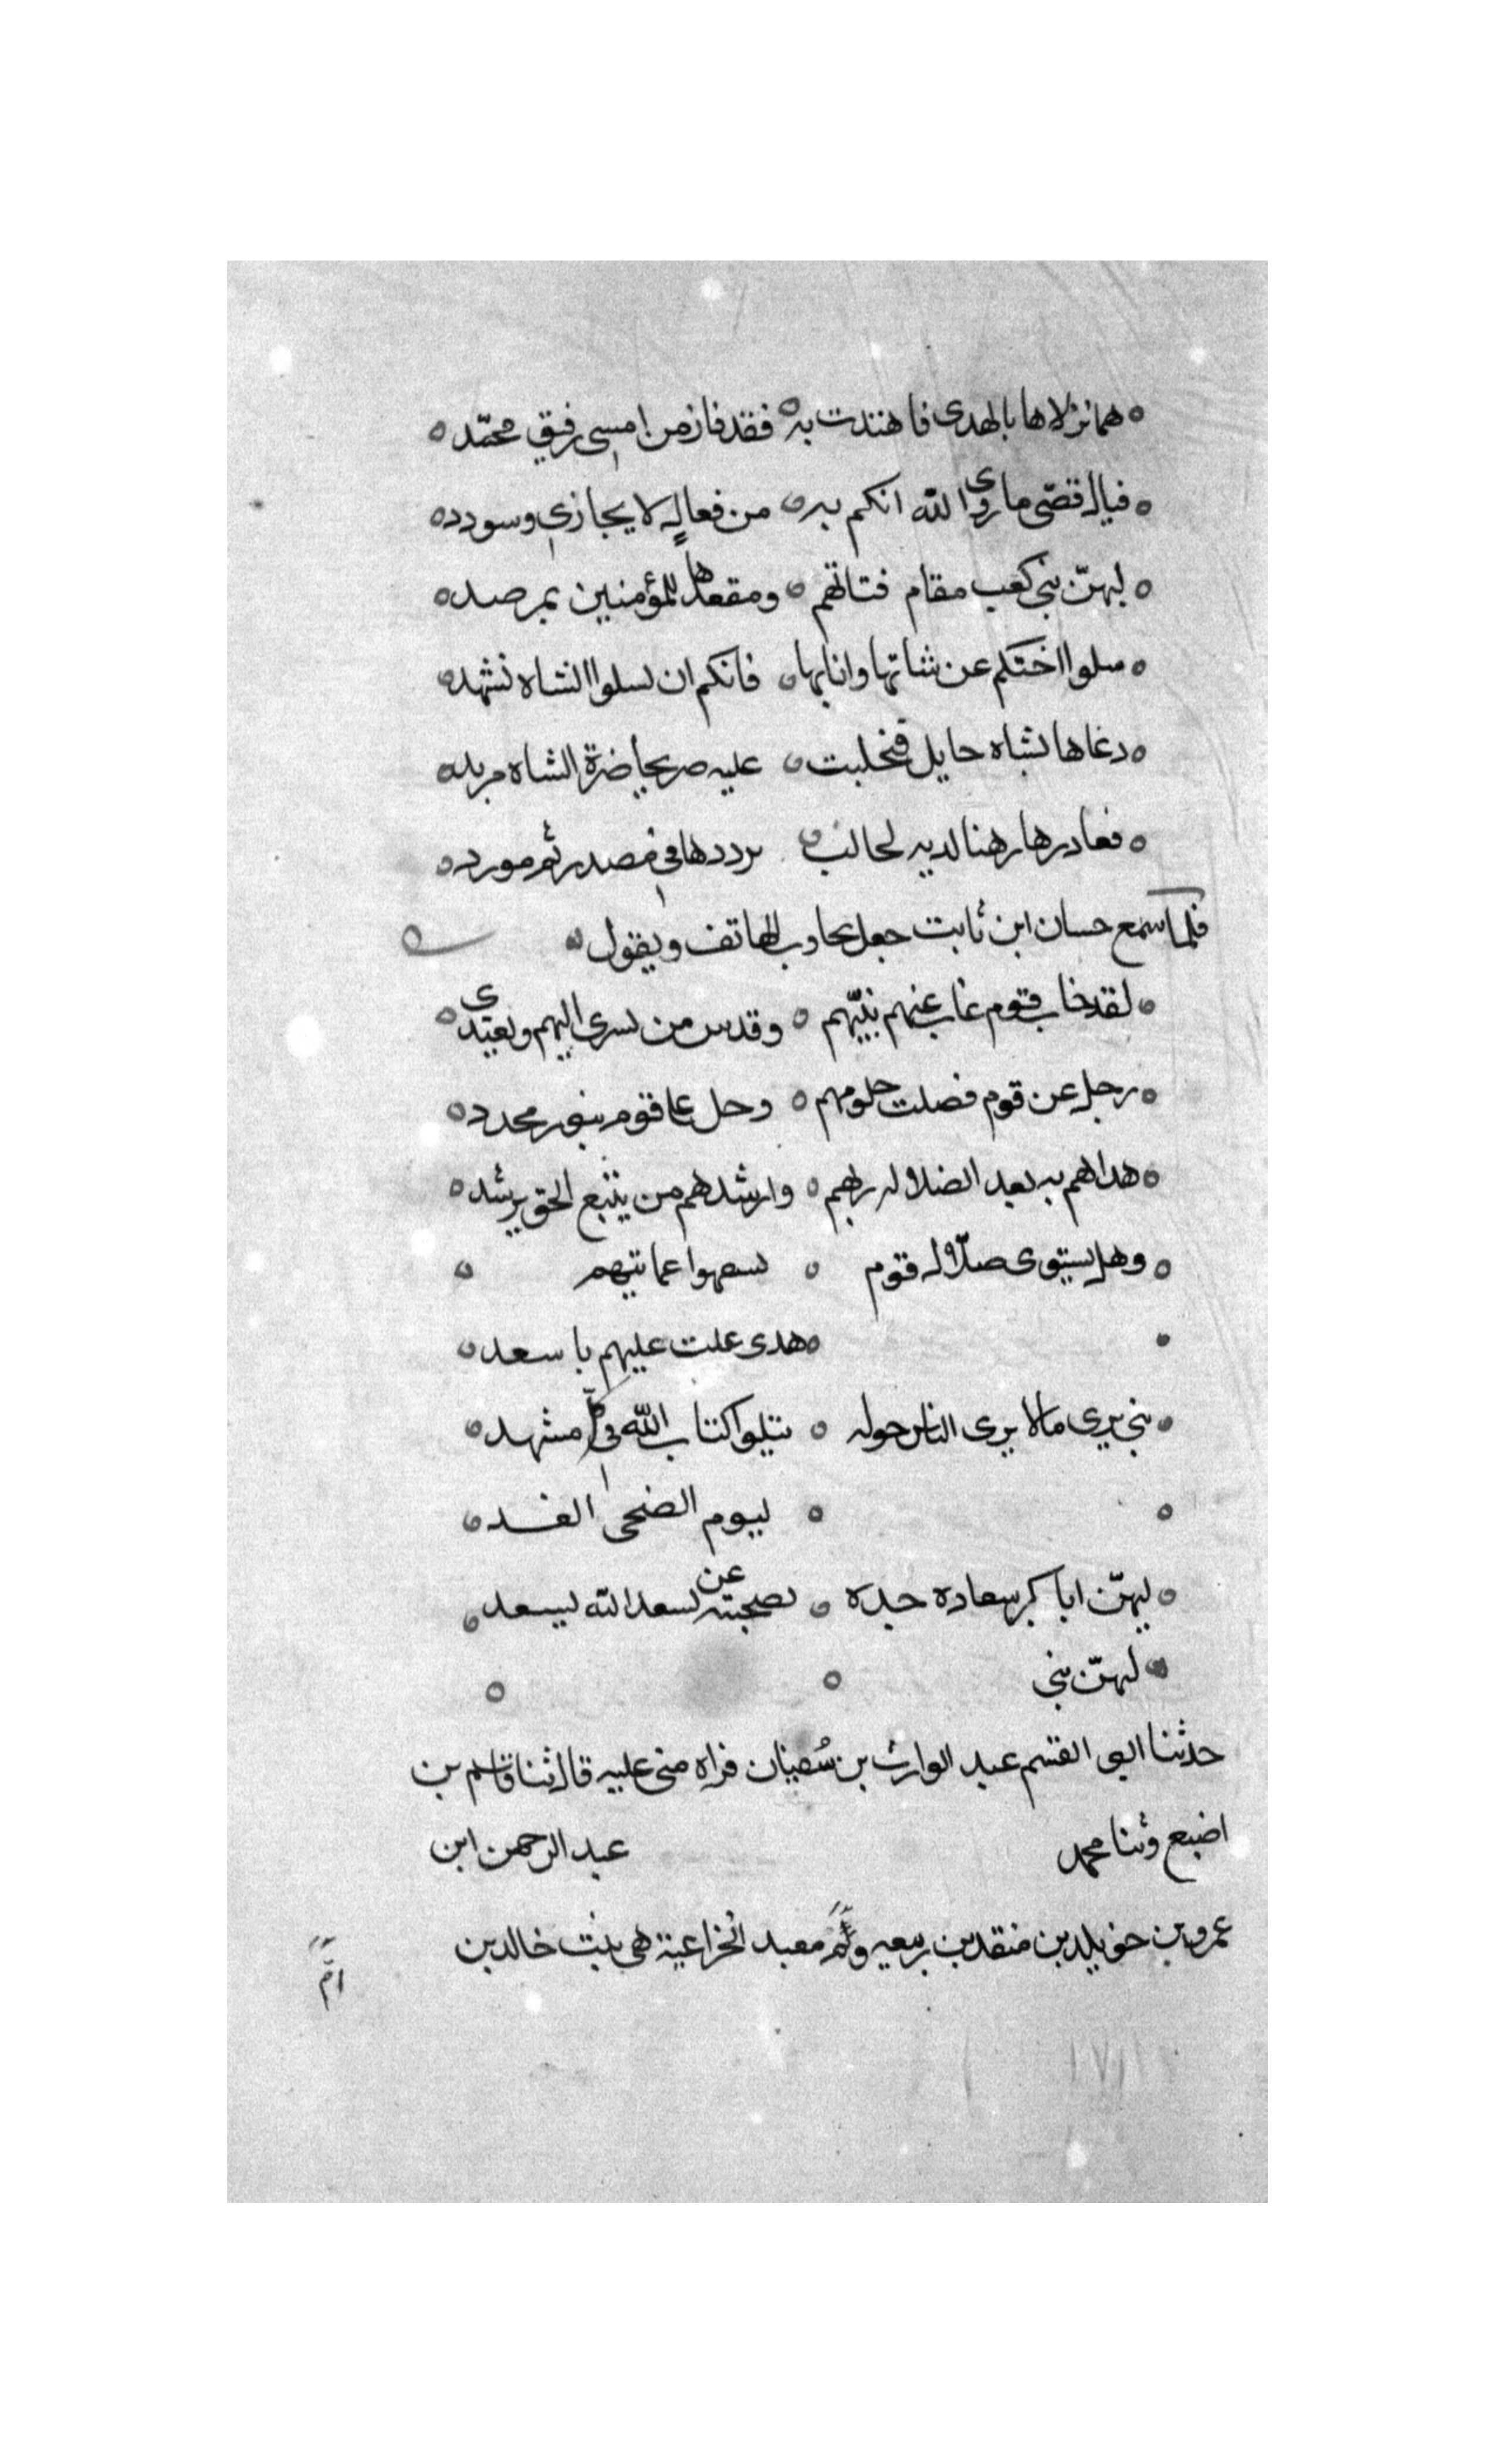 هما نزلاها بالهدى فاهتدت به ه فقد فاز من امسى رفيق محمّد
فيال قصّى ما زوى الله انكم به ه من فعال لا يجازى وسودد
ليهنّ بنى كعب مقام فتاتهم ه ومقعدها للمؤمنين بمرصد
سلوا اختكم عن شاتها وانايها ه فانكم ان تسلوا الشاه تشهد
دعاها بشاه حايل فتحلبت ه عليه صريحا ضرة الشاه مزبد
فغادرها رهنا لديه لحالب ه يرددها فى مصدر ثم مورد
فلما سمع حسان ابن ثابت جعل يجاوب الهاتف ويقول
لقد خاب قوم غاب عنهم نبيّهم ه وقدس من يسرى اليهم ويغتدى
رحل عن قوم فضلت حلومهم ه وحل على قوم بنور مجدد
هداهم به بعد الضلاله ربهم ه وارشدهم من يتبع الحق يرشد
وهل يستوى ضلّال قوم ه تسفهوا عمايتهم
هدى علت عليهم باسعد
نبى يرى مالا يرى الناس حوله ه يتلوا كتاب الله فى كلّ مشهد
ه ليوم الضحى الغد
ليهنّ ابا بكر سعاده جده ه بصحبته عن يسعد الله يسعد
ليهنّ بنى
حدثنا ابو القسم عبد الوارث بن سُفيان قراه منى عليه قال ثنا قاسم بن
اضبع وثنا محمد عبد الرحمن ابن
عمرو بن خويلد بن منقد بن ربيعه وامّ معبد الخزاعية هى بنت خالد بن
امّ